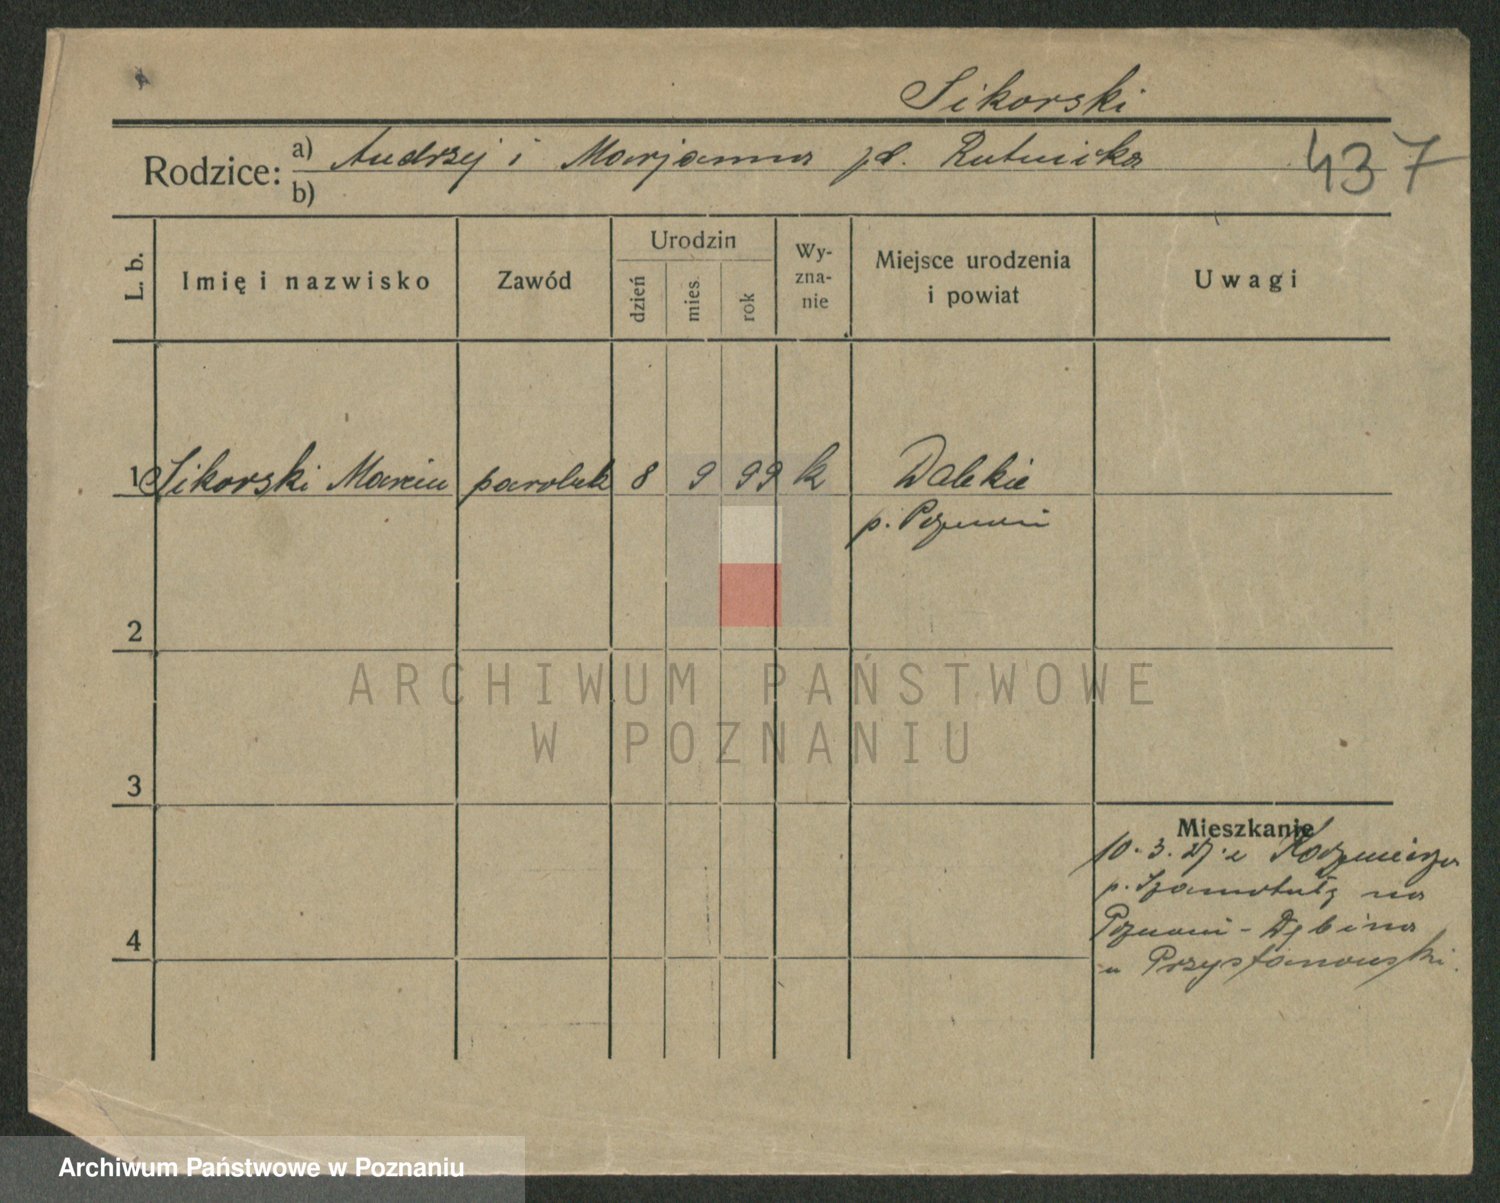 Sikorski
Rodzice: a) Andrzej i Marjanna
b)
437
L. b.
Imię i nazwisko
Zawód
Urodzin
dzień
mies.
rok
Wy-
zna-
nie
Miejsce urodzenia
i powiat
Uwagi
1 Sikorski Marcin parobek 8 9 99 k Dalekie
p. Poznań
2
3
4
Mieszkanie
10. 3. 27. z
p. Szamotuły na
Poznań - Dębina
u Przystanowski.
ARCHIWUM PAŃSTWOWE
W POZNANIU
Archiwum Państwowe w Poznaniu